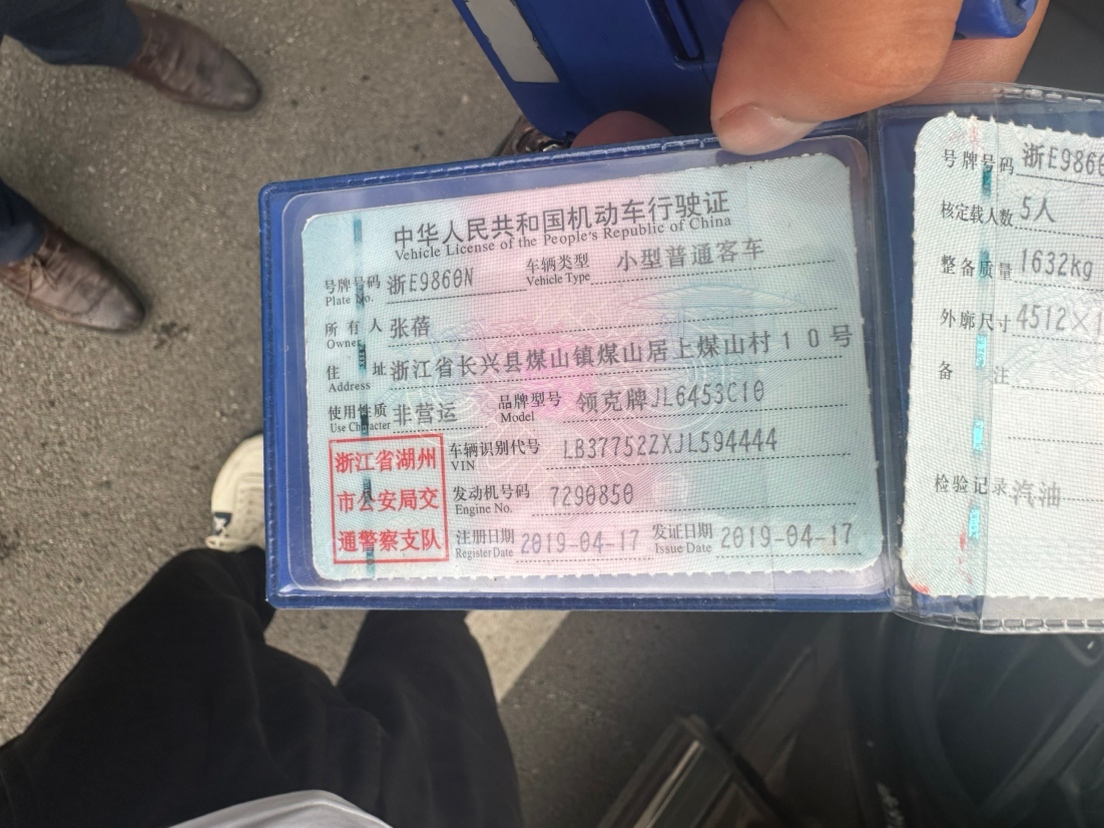 中华人民共和国机动车行驶证
Vehicle License of the People's Republic of China
号牌号码 浙E9860N 车辆类型 小型普通客车
Plate No. Vehicle Type
所有人 张蓓
Owner
住址 浙江省长兴县煤山镇煤山居上煤山村10号
Address
使用性质 非营运 品牌型号 领克牌JL6453C10
Use Character Model
浙江省湖州
市公安局交
通警察支队
车辆识别代号 LB37752ZXJL594444
VIN
发动机号码 7290850
Engine No.
注册日期 2019-04-17 发证日期 2019-04-17
Register Date Issue Date
号牌号码 浙E9860
核定载人数 5人
整备质量 1632kg
外廓尺寸 4512×1
备注
检验记录 汽油